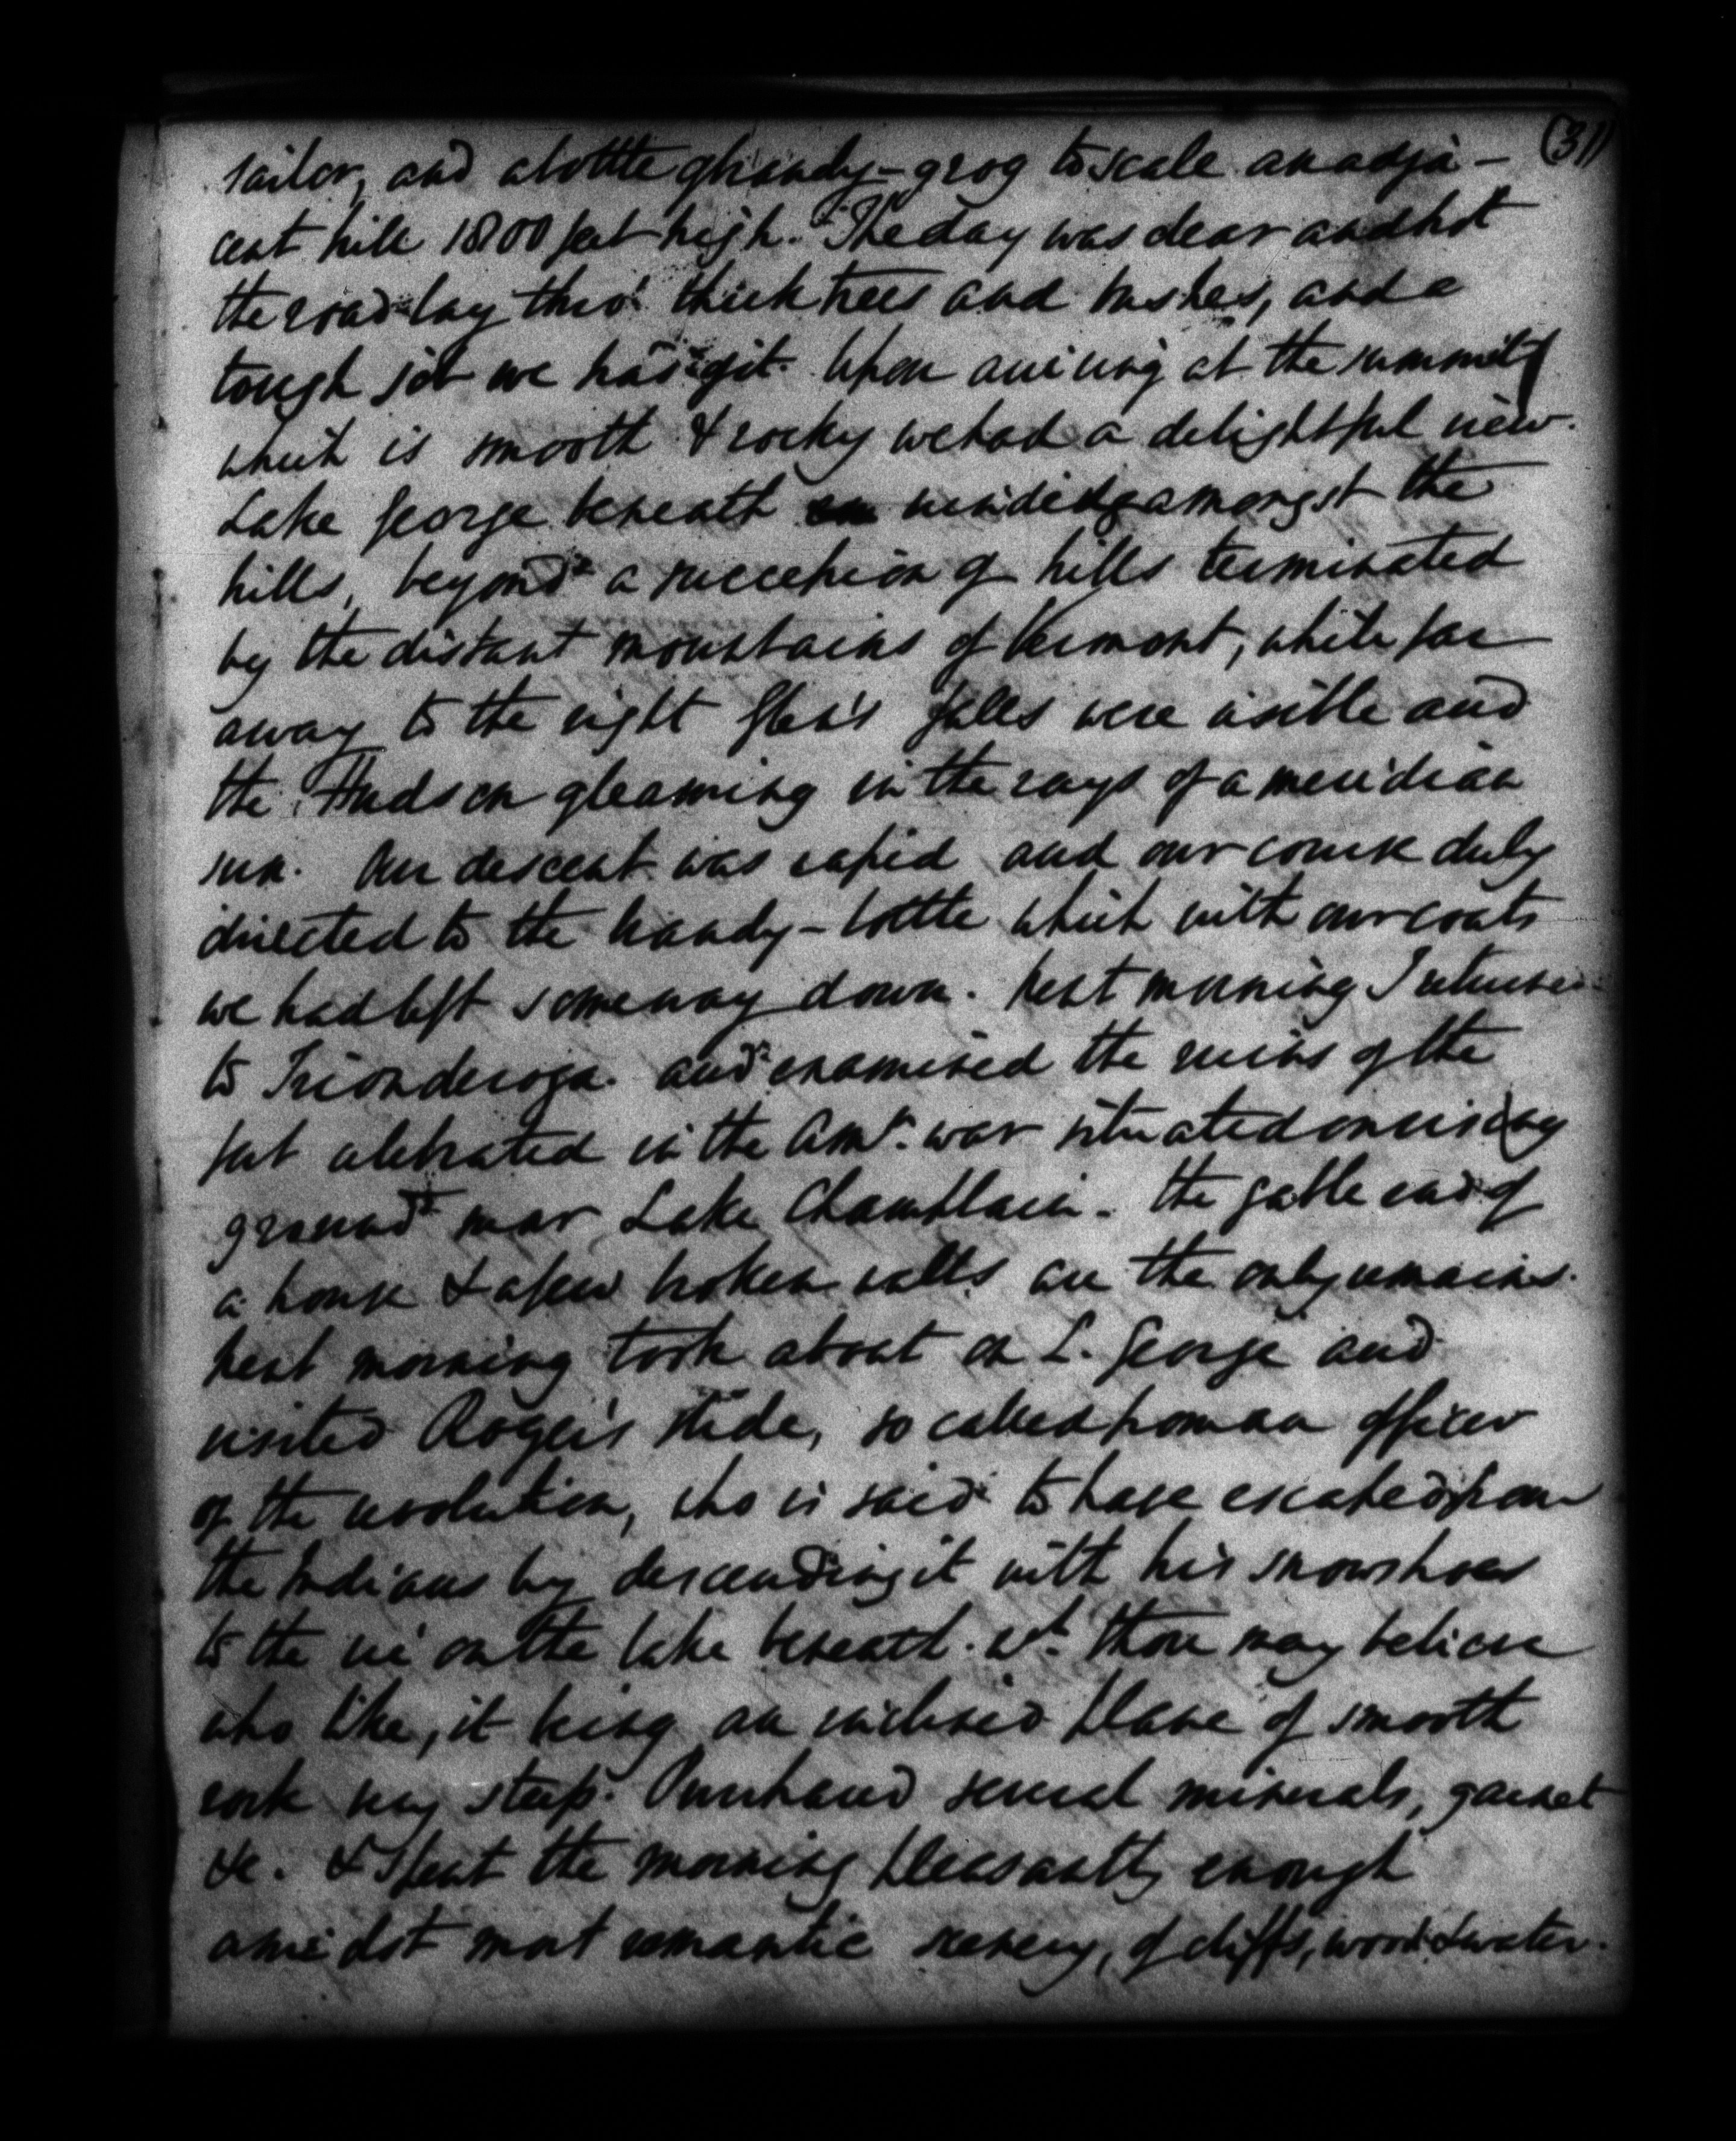 (31)
sailor, and a bottle of brandy-grog to scale an adja-
cent hill 1800 feat high. The day was clear and hot
the road lay thro' thick trees and bushes, and a
tough job we had of it. Upon arriving at the summit
which is smooth & rocky we had a delightful view.
Lake George beneath winding amongst the
hills, beyond a succession of hills terminated
by the distant mountains of Vermont, while far
away to the right Glen's falls were visible and
the Hudson gleaming in the rays of a meridian
sun. Our descent was rapid and our course duly
directed to the brandy-bottle which with our coats
we had left someway down. Next morning I returned
to Ticonderoga and examined the ruins of the
fort celebrated in the Amn. war situated on rising
ground near Lake Champlain. The gable end of
a house & a few broken walls are the only remains.
Next morning took a boat on L. George and
visited Roger's slide, so called from an officer
of the revolution, who is said to have escaped from
the Indians by descending it with his snowshoes
to the ice on the lake beneath. wh. those may believe
who like, it being an inclined plane of smooth
rock very steep. Purchased several minerals, garnet
&c. & spent the morning pleasantly enough
amidst most romantic scenery, of cliffs, wood & water.